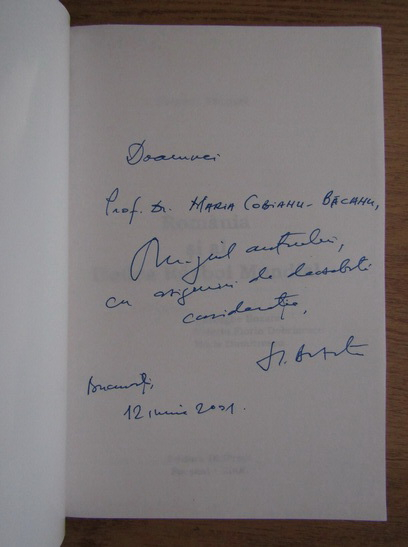 Doamnei
Prof. Dr. MARIA COBIANU-BĂCANU,
Omagiul autorului,
cu asigurări de deosebită
considerație,
București,
12 iunie 2001.